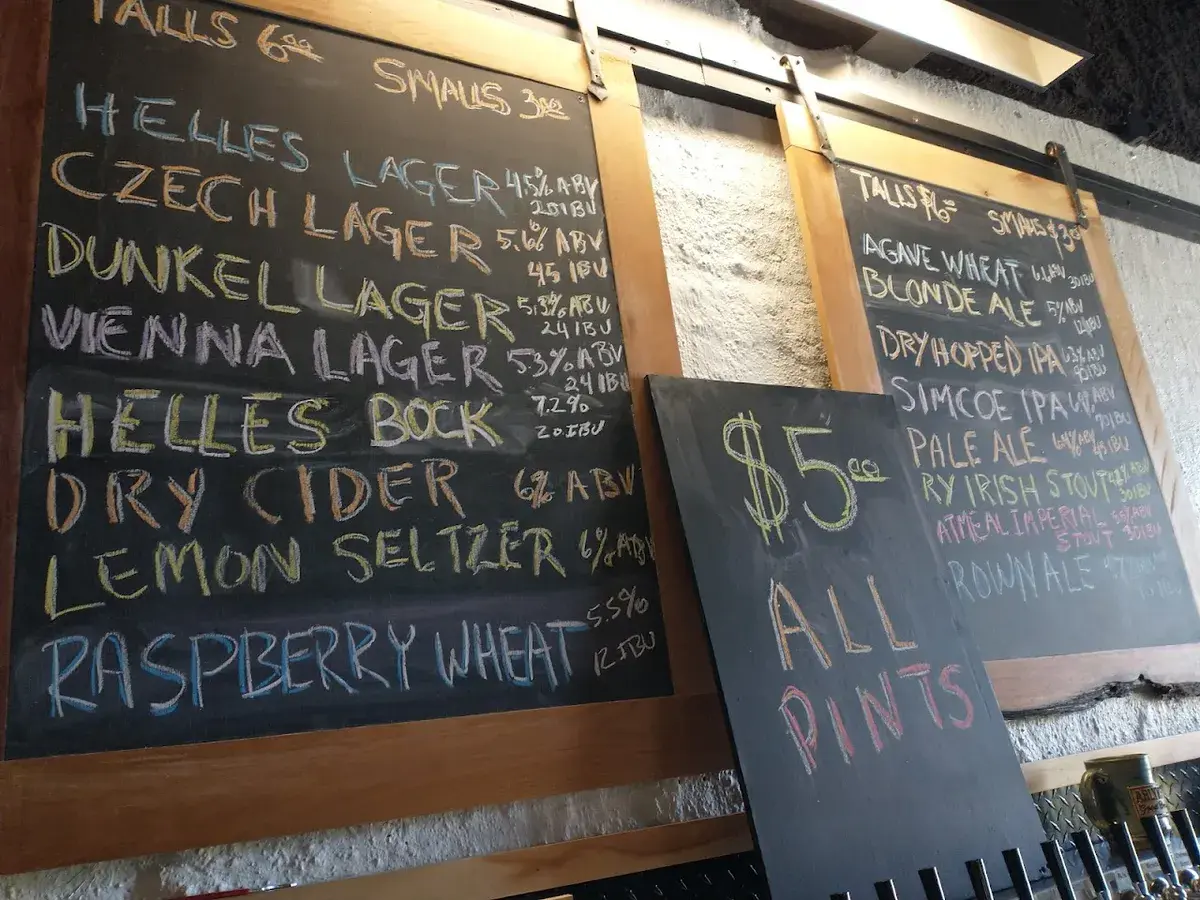 TALLS 6.00
SMALLS 3.00
HELLES LAGER 4.5% ABV
20 IBU
CZECH LAGER 5.6% ABV
45 IBU
DUNKEL LAGER 5.3% ABV
24 IBU
VIENNA LAGER 5.3% ABV
24 IBU
HELLES BOCK 7.2%
20 IBU
DRY CIDER 6% ABV
LEMON SELTZER 6% ABV
RASPBERRY WHEAT 5.5%
12 IBU
$5.00
ALL
PINTS
TALLS $6
SMALLS $3.00
AGAVE WHEAT
30 IBU
BLONDE ALE 5% ABV
DRY HOPPED IPA
90 IBU
SIMCOE IPA ABV
70 IBU
PALE ALE 45 IBU
RY IRISH STOUT
30 IBU
ATMEAL IMPERIAL
STOUT 30 IBU
ROWN ALE